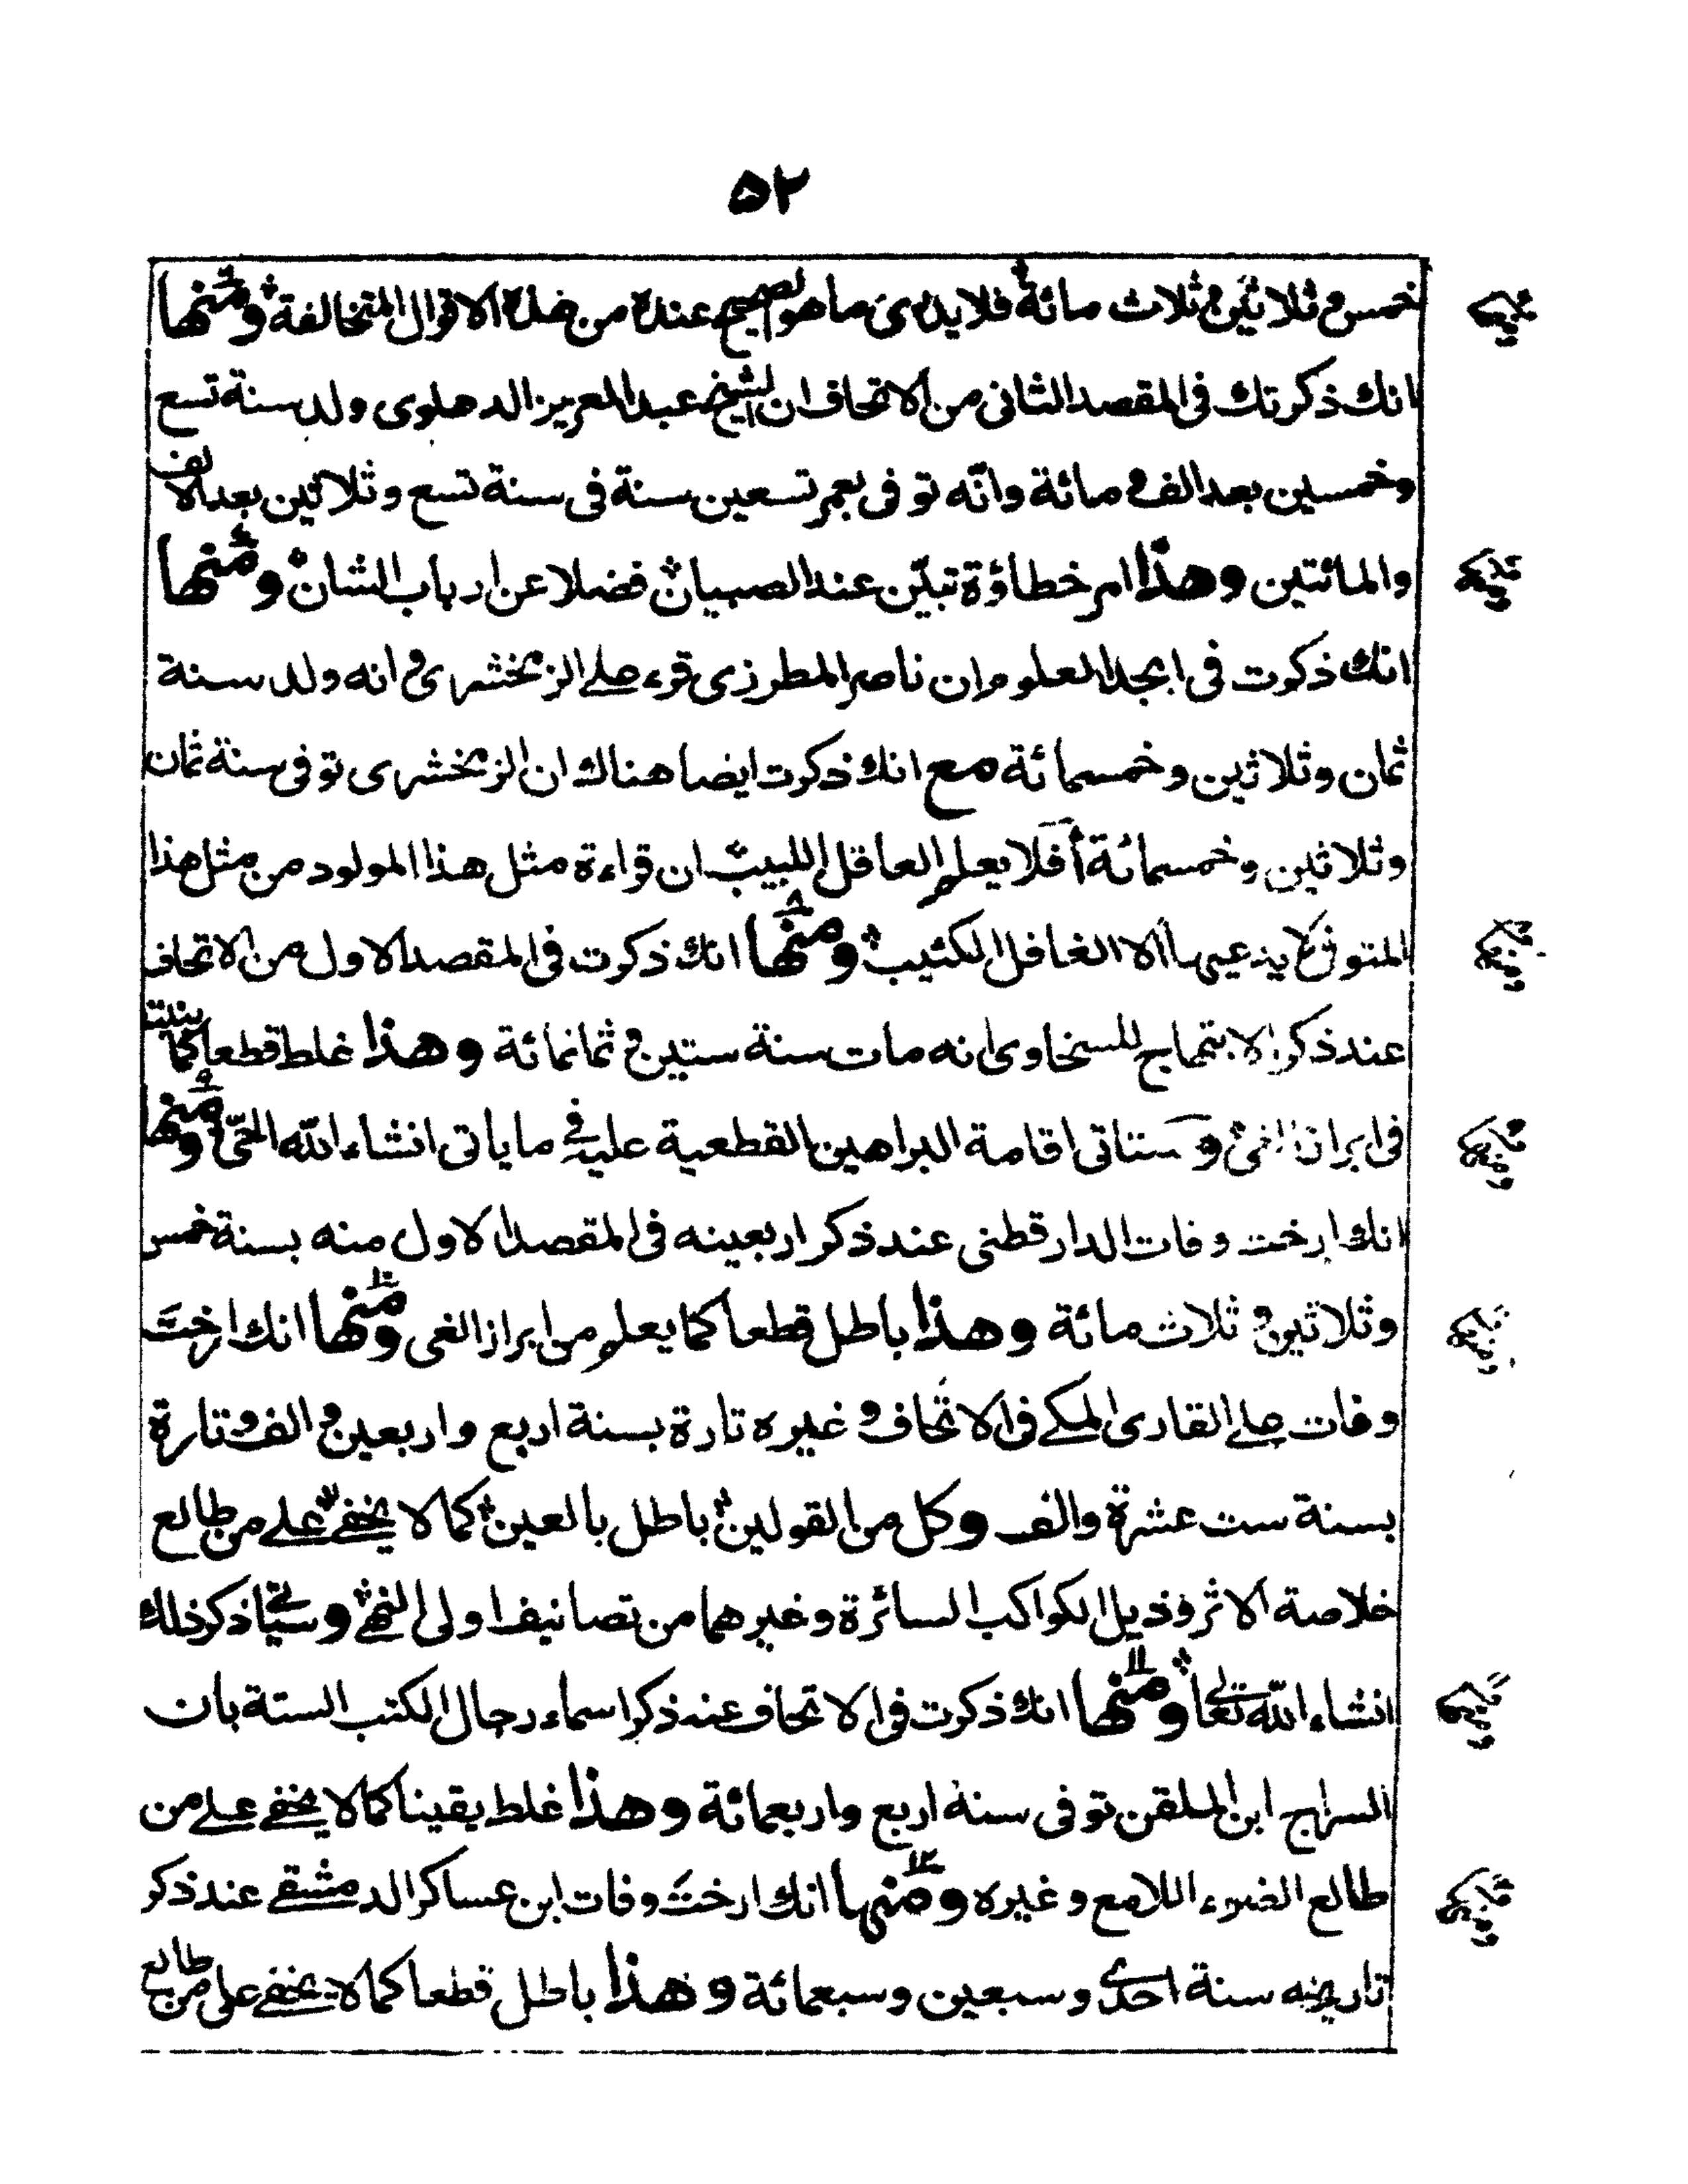 ۵۲
خمس وثلاثين وثلاث مائة فلا يدرى ما هو الصحيح عنده من هذه الاقوال المتخالفة ومنها
انك ذكرتك فى المقصد الثانى من الاتحاف ان الشيخ عبد العزيز الدهلوى ولد سنة تسع
وخمسين بعد الف و مائة وانّه توفى بعمر تسعين سنة فى سنة تسع وثلاثين بعد الالف
والمائتين وهذا امر خطاؤه تبيّن عند الصبيان فضلا عن ارباب الشان ومنها
انك ذكرت فى ابجد العلوم ان ناصر المطرزى قرء على الزمخشرى وانه ولد سنة
ثمان وثلاثين وخمسمائة مع انك ذكرت ايضا هناك ان الزمخشرى توفى سنة ثمان
وثلاثين وخمسمائة أفلا يعلم العاقل اللبيب ان قراءة مثل هذا المولود من مثل هذا
المتوفى لا يدعيها الا الغافل الكئيب ومنها ۸ انك ذكرت فى المقصد الاول من الاتحاف
عند ذكر الابتهاج للسخاوى انه مات سنة ستين و ثمانمائة وهذا غلط قطعا كما بينته
فى ابراز الغى وستاتى اقامة البراهين القطعية عليه فى ما ياتى انشاء الله الحىّ ومنها ۹
انك ارخت وفات الدارقطنى عند ذكر اربعينه فى المقصد الاول منه بسنة خمس
وثلاثين و ثلاث مائة وهذا باطل قطعا كما يعلم من ابراز الغى ومنها ۱۰ انك ارختَ
وفات على القارى المكى فى الاتحاف و غيره تارة بسنة اربع واربعين والف وتارة
بسنة ست عشرة والف وكل من القولين باطل بالعين كما لا يخفى على من طالع
خلاصة الاثر وذيل الكواكب السائرة وغيرهما من تصانيف اولى النهى وسياتى ذكر ذلك
انشاء الله تعالى ومنها ۱۱ انك ذكرت فى الاتحاف عند ذكر اسماء رجال الكتب الستة بان
السراج ابن الملقن توفى سنة اربع واربعمائة وهذا غلط يقينا كما لا يخفى على من
طالع الضوء اللامع وغيره ومنها ۱۲ انك ارختَ وفات ابن عساكر الدمشقى عند ذكر
تاريخه سنة احدى وسبعين وسبعمائة وهذا باطل قطعا كما لا يخفى على من طالع